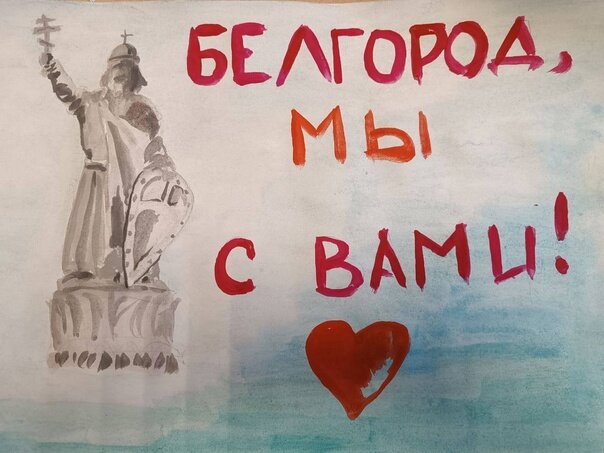 БЕЛГОРОД,
МЫ
С ВАМИ!